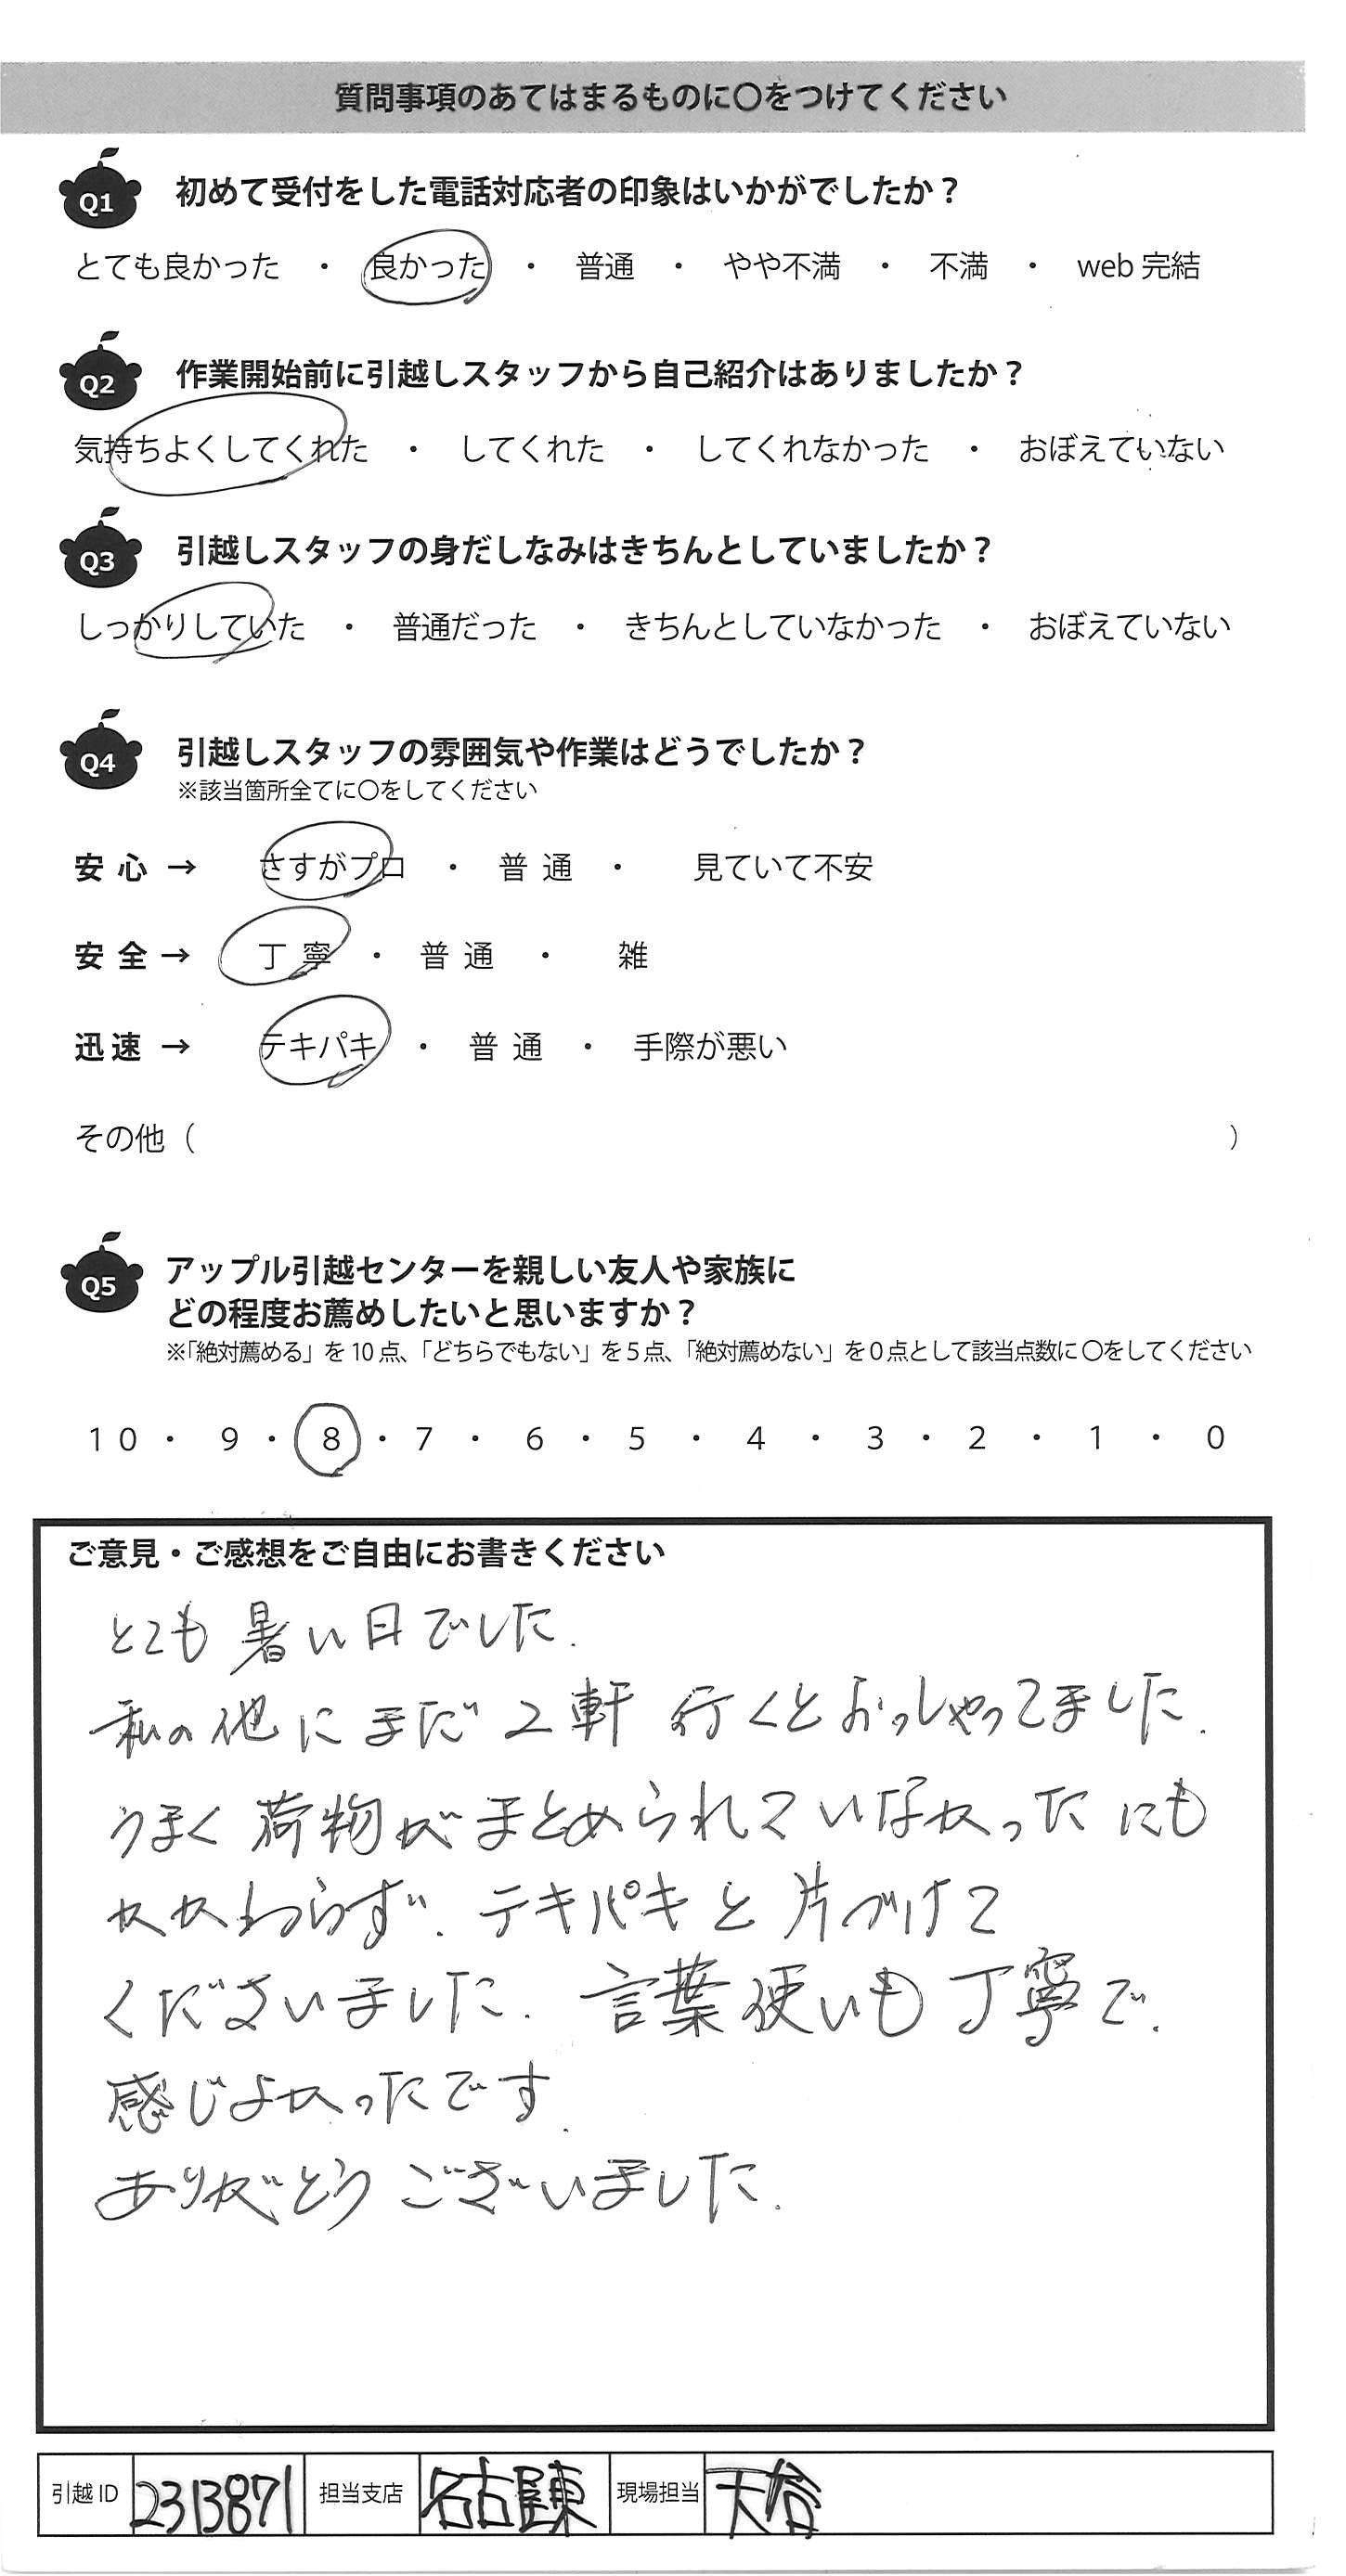 質問事項のあてはまるものに〇をつけてください
Q1 初めて受付をした電話対応者の印象はいかがでしたか？
とても良かった ・ 良かった ・ 普通 ・ やや不満 ・ 不満 ・ web 完結
Q2 作業開始前に引越しスタッフから自己紹介はありましたか？
気持ちよくしてくれた ・ してくれた ・ してくれなかった ・ おぼえていない
Q3 引越しスタッフの身だしなみはきちんとしていましたか？
しっかりしていた ・ 普通だった ・ きちんとしていなかった ・ おぼえていない
Q4 引越しスタッフの雰囲気や作業はどうでしたか？
※該当箇所全てに〇をしてください
安心 → さすがプロ ・ 普通 ・ 見ていて不安
安全 → 丁寧 ・ 普通 ・ 雑
迅速 → テキパキ ・ 普通 ・ 手際が悪い
その他（ ）
Q5 アップル引越センターを親しい友人や家族に
どの程度お薦めしたいと思いますか？
※「絶対薦める」を 10 点、「どちらでもない」を 5 点、「絶対薦めない」を 0 点として該当点数に 〇をしてください
10 ・ 9 ・ 8 ・ 7 ・ 6 ・ 5 ・ 4 ・ 3 ・ 2 ・ 1 ・ 0
ご意見・ご感想をご自由にお書きください
とても暑い日でした.
私の他にまだ 2軒 行くとおっしゃってました.
うまく荷物がまとめられていなかったにも
かかわらず. テキパキと片づけて
くださいました. 言葉使いも丁寧で.
感じよかったです.
ありがとうございました.
引越 ID 2313871 担当支店 名古屋東 現場担当 大谷